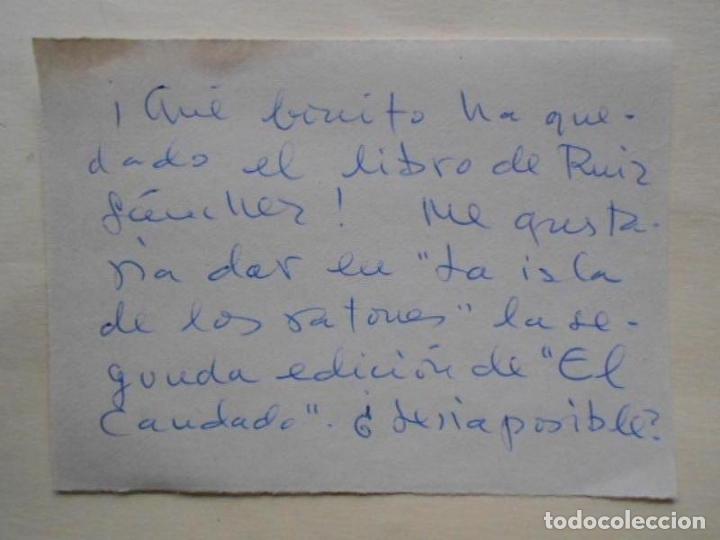 ¡Qué bonito ha que-
dado el libro de Ruiz
Sánchez! Me gusta-
ría dar en "La isla
de los ratones" la se-
gunda edición de "El
Candado". ¿Sería posible?
todocoleccion